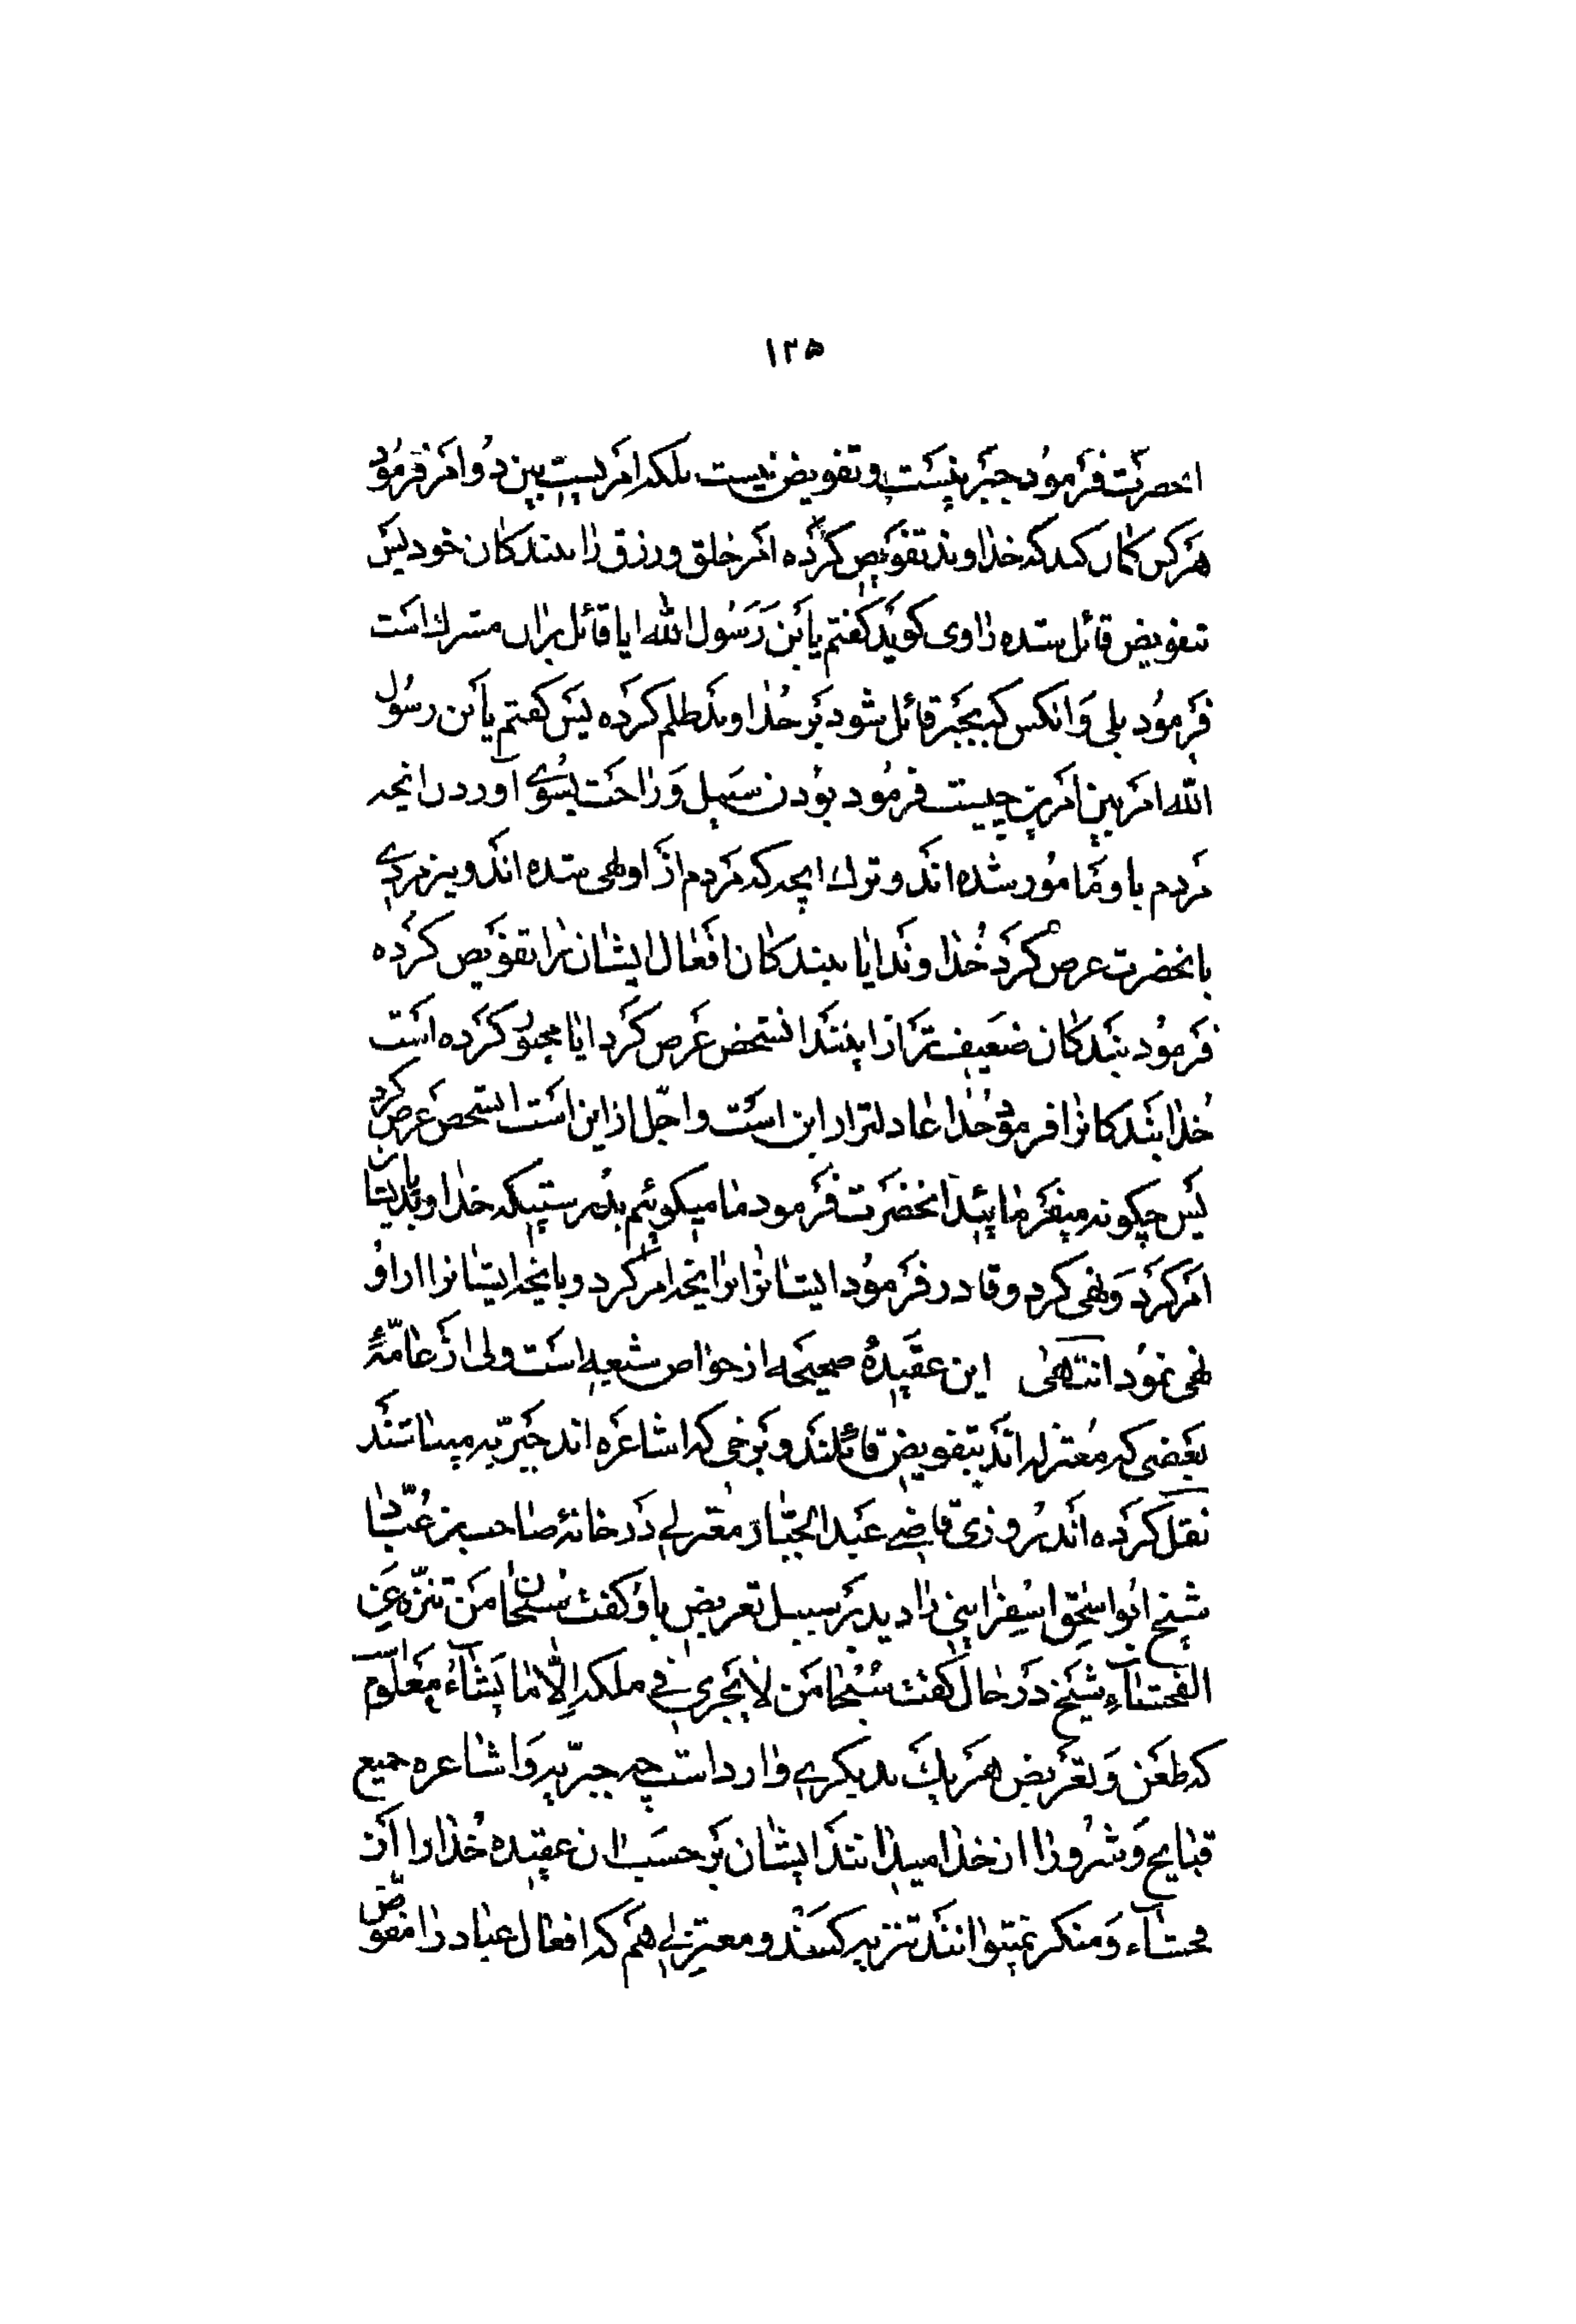 ۱۲۵
انحضرت فرمود جبر نیست و تفویض نیست بلکه امریست بین دو امر فرمود
هرکس کمان کند که خداوند تفویض کرده امر خلق و رزق را ببندکان خود پس
بتفویض قائل شده راوی کوید کفتم یابن رسول الله ایا قائل بران مشرک است
فرمود بلی و انکس که بجبر قائل شود بر خداوند ظلم کرده پس کفتم یابن رسول
الله امر بین امرین چیست فرمود بودن سبیل و راحت بسوی آوردن انچه
مردم باو مامور شده اند و ترک انچه که مردم از او نهی شده اند و نیز مردی
بانحضرت عرض کرد خداوند ایا ببندکان افعال ایشان را تفویض کرده
فرمود بندکان ضعیف تر از اینند انشخص عرض کرد ایا مجبور کرده است
خدا بندکانرا فرمود خدا عادلتر از این است و اجل از این است انشخص عرض کرد
پس چکونه میفرمائید انحضرت فرمود ما میکوئیم بدرستیکه خداوند ایشانرا
امر کرد و نهی کرد و قادر فرمود ایشانرا برانچه امر کرد و بانچه ایشانرا از او
نهی نمود انتهی این عقیده صحیحه از خواص شیعه است ولی از عامّهٔ
بعضی که معتزله اند بتفویض قائلند و برخی که اشاعره اند جبریّه میباشند
نقل کرده اند روزی قاضی عبد الجبّار معتزلی در خانهٔ صاحب بن عبّاد
شیخ ابو اسحق اسفراینی را دید بر سبیل تعریض باو کفت سبحان من تنزّه عن
الفحشاء شیخ در حال کفت سبحان من لا یجری فی ملکه إلّا ما یشاء معلوم است
که طعن و تعریض هر یک بدیکری وارد است چه جبریّه و اشاعره جمیع
قبایح و شرور را از خدا میدانند ایشان بر حسب ان عقیده خدا را از
فحشاء و منکر نمیتوانند تنزیه کنند و معتزلی هم که افعال عباد را مفوّض